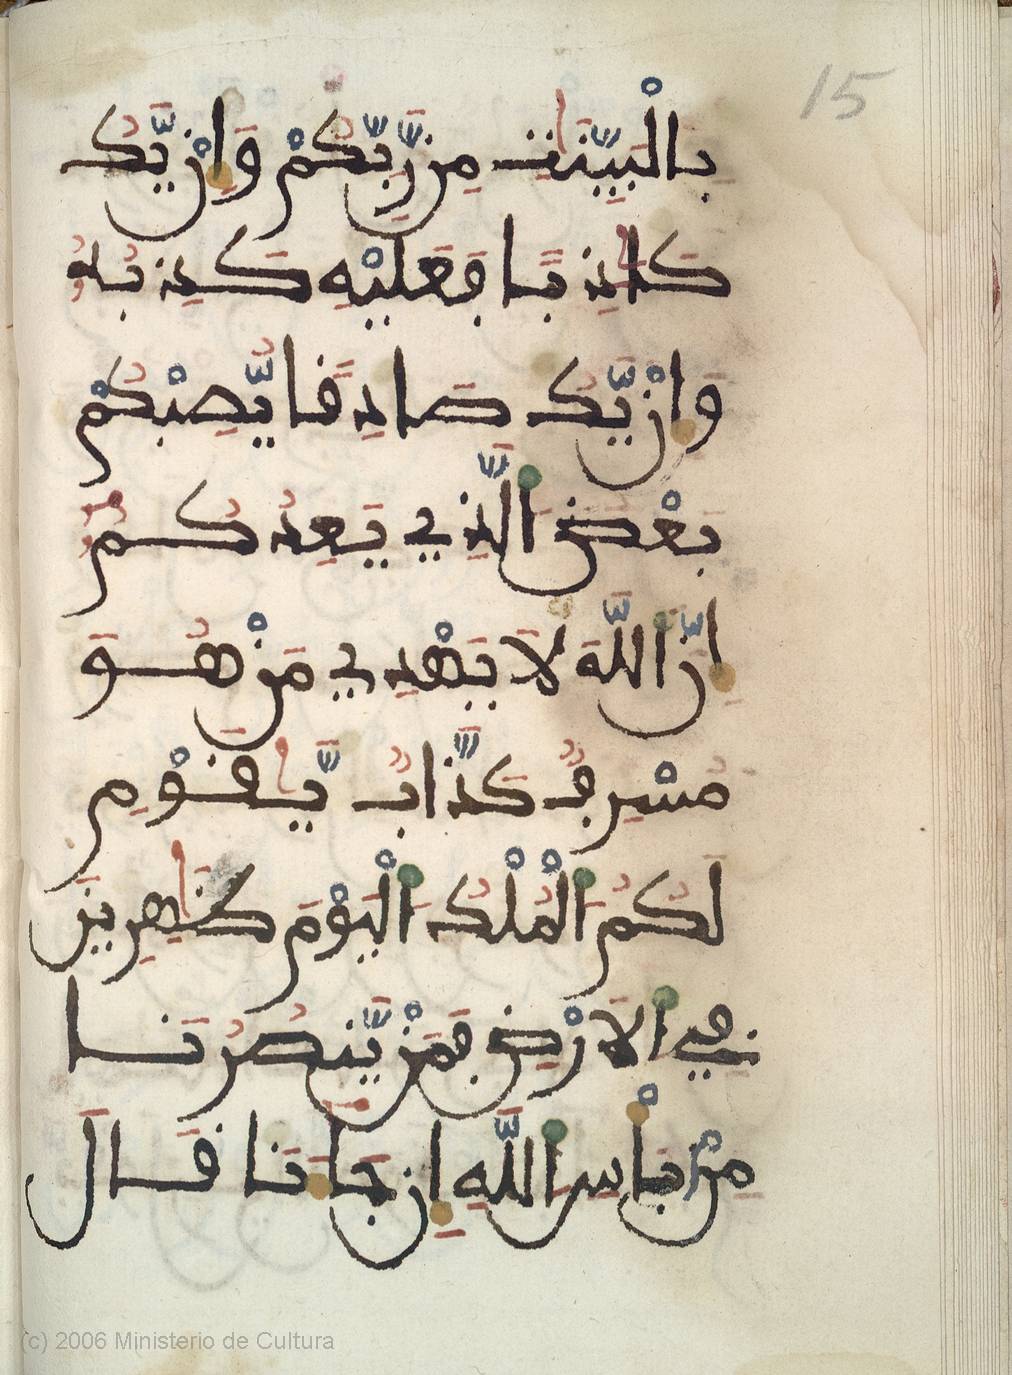 15
بِالْبَيِّنَٰتِ مِن رَّبِّكُمْ وَإِنْ يَّكُ
كَٰذِبًا فَعَلَيْهِ كَذِبُهُ
وَإِنْ يَّكُ صَادِفًا يُّصِبْكُمْ
بَعْضُ الَّذِي يَعِدُكُمُ
إِنَّ اللَّهَ لَا يَهْدِي مَنْ هُوَ
مُسْرِفٌ كَذَّابٌ يَّٰقَوْمِ
لَكُمُ الْمُلْكُ الْيَوْمَ ظَٰهِرِينَ
فِي الَارْضِ فَمَنْ يَّنصُرُنَا
مِنْ بَأْسِ اللَّهِ إِن جَآنَا قَالَ
(c) 2006 Ministerio de Cultura